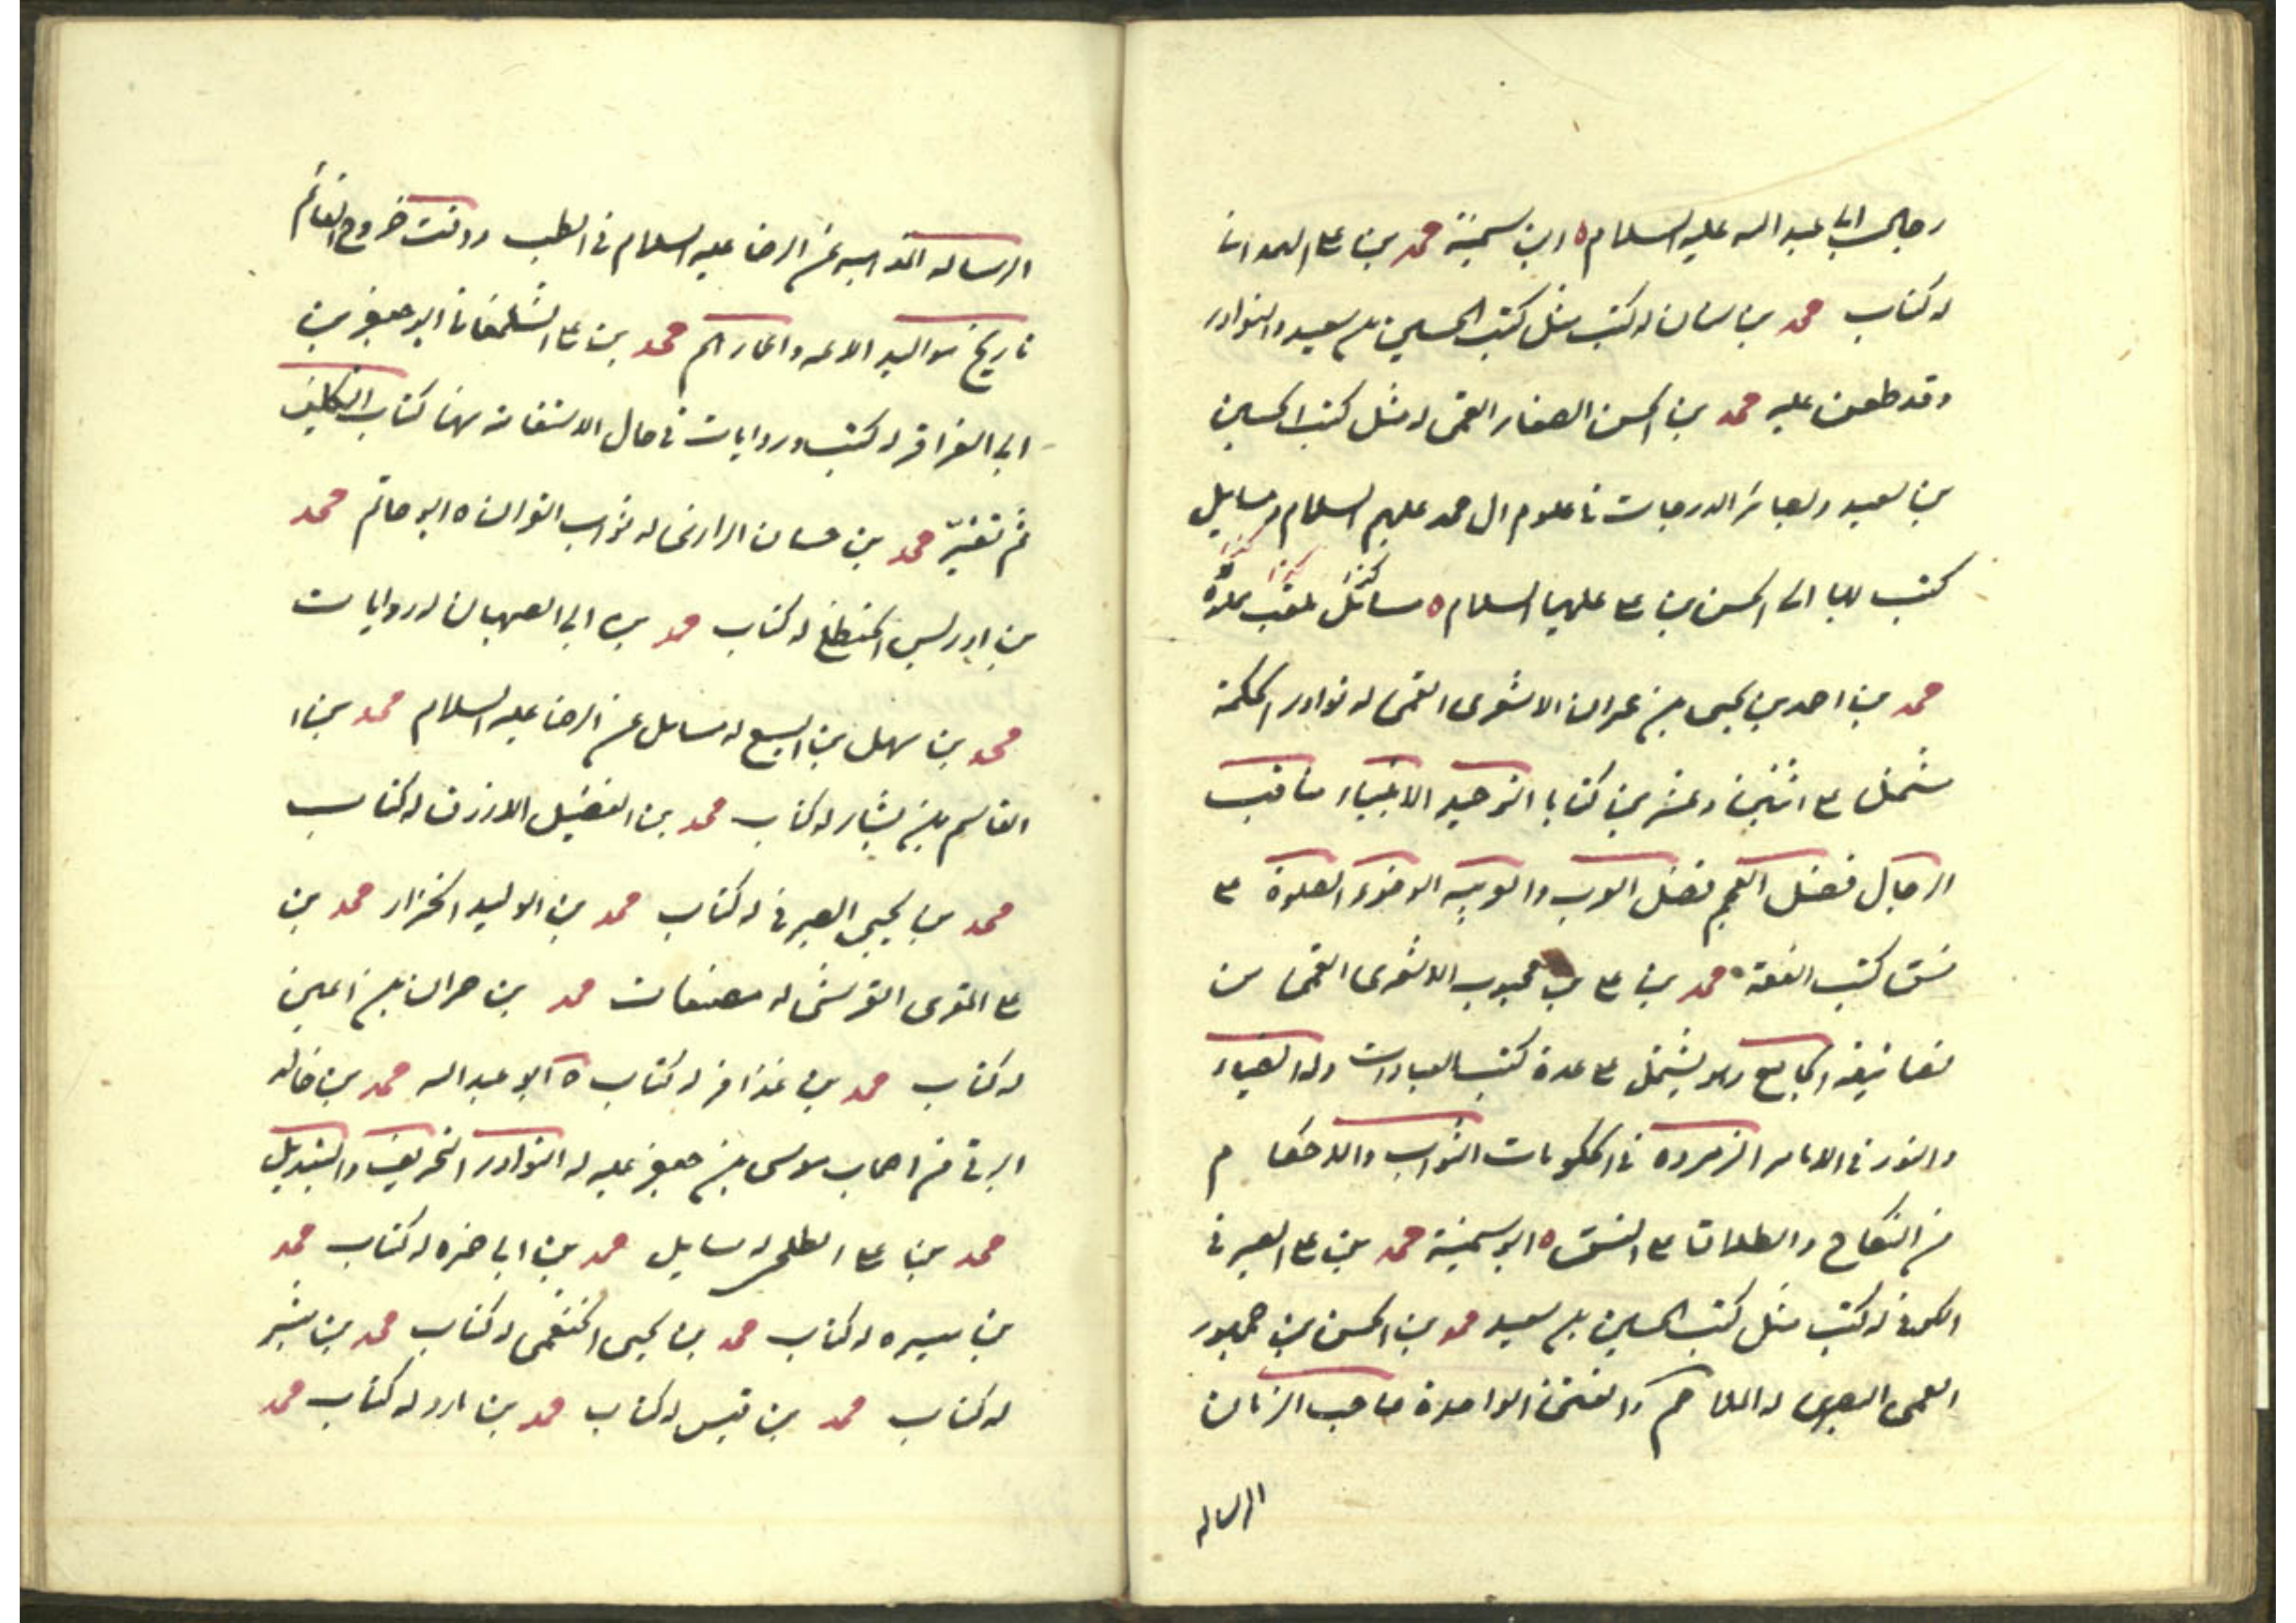 رجال ابى عبد الله عليه السلام ه ابن سمينة محمد بن على الهمدانى
له كتاب محمد بن سنان له كتب مثل كتب الحسين بن سعيد والنوادر
وقد طعن عليه محمد بن الحسن الصفار القمى له مثل كتب الحسين
بن سعيد وبصائر الدرجات فى علوم ال محمد عليهم السلام ومسايل
كتب بها الى الحسن بن على عليهما السلام ه مسائل يلقب بمولة
محمد بن احمد بن يحيى بن عمران الاشعرى القمى له نوادر الحكمة
يشتمل على اثنين وعشرين كتابا التوحيد الانبياء مناقب
الرجال فضل العجم فضل العرب والعربيه الوضوء الصلوة على
نسق كتب الفقه محمد بن على بن محبوب الاشعرى القمى من
تصانيفه الجامع وهو يشتمل على عدة كتب العبادات وله الضياء
والنور فى الامامه الزمرده فى الحكومات الثواب والاحكام
من النكاح والطلاق على النسق ه ابو سمينة محمد بن على الصيرفى
الكوفى له كتب مثل كتب الحسين بن سعيد محمد بن الحسن بن جمهور
العمى البصرى له الملاحم والفتن الواحدة صاحب الزمان
الرساله
الرساله المذهبيه عن الرضا عليه السلام فى الطب ووقت خروج القائم
تاريخ مواليد الائمه واعمارهم محمد بن على الشلمغانى ابو جعفر بن
ابى العزاقر له كتب وروايات فى حال الاستقامه منها كتاب التكليف
ثم تغيّر محمد بن حسان الرازى له ثواب القران ه ابو حاتم محمد
بن ادريس الحنظلى له كتاب محمد بن ابى الصهبان له روايات
محمد بن سهل بن اليسع له مسايل عن الرضا عليه السلام محمد بن
القاسم بن بشار له كتاب محمد بن الفضيل الازرق له كتاب
محمد بن يحيى الصيرفى له كتاب محمد بن الوليد الخزاز محمد بن
على المقرى القرشى له مصنفات محمد بن حمران بن اعين
له كتاب محمد بن عذافر له كتاب ه ابو عبد الله محمد بن خالد
البرقى من اصحاب موسى بن جعفر عليه له النوادر التحريف والتبديل
محمد بن على الطلحى له مسايل محمد بن ابى حمزه له كتاب محمد
بن ميسره له كتاب محمد بن يحيى الخثعمى له كتاب محمد بن بشير
له كتاب محمد بن قيس له كتاب محمد بن مارد له كتاب محمد